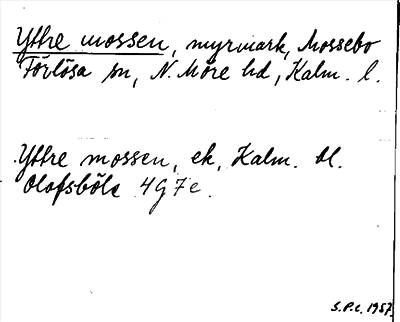 Yttre mossen, myrmark, Mossebo
Förlösa sn, N. Möre hd, Kalm. l.
Yttre mossen, ek, Kalm. bl.
Olofsböle 4G7e.
S.P.c. 1957.